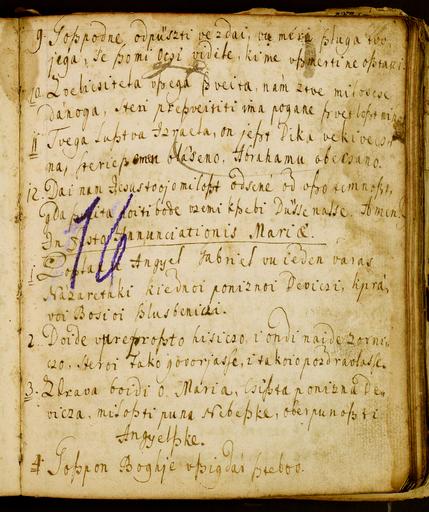 9. Goszpodne, odpüszti vezdai, vu miru szluga tvo
jega, Je szo mi Ocsi vidile, ki me vszmertine osztavi.
10. Zvelicsitela vszega szveita, nam z tve miloscse
dánoga, steri preszveititi ima pogane
11 Tvega lusztva Izraela, on jeszt Dika vekivecs
na, Abrahamu obecsano.
12. Dai nam Jesus tvojo miloszt odsené od vszo temnoszt,
gda bode vzemi kszebi Düsse nasse. Amen.
In Festo Annunciationis Mariæ.
1. Poszlan Angyel Gabriel vu ieden varas
Nazaretski kiednoi poniznoi Deviczi, kprá,
voi Bosioi szlusbeniczi.
2. Doide vpreproszto hisiczo, i ondi naide zorni,
czo, steroi tako govorjasse, i tako io pozdravlasse.
3. Zdrava boidi o Maria, csiszta ponizna De,
vicza, miloszti puna Nebeszke, oberpunoszti
Angyelszke.
4. Goszpon Boghje vszigdai sztebov.
16